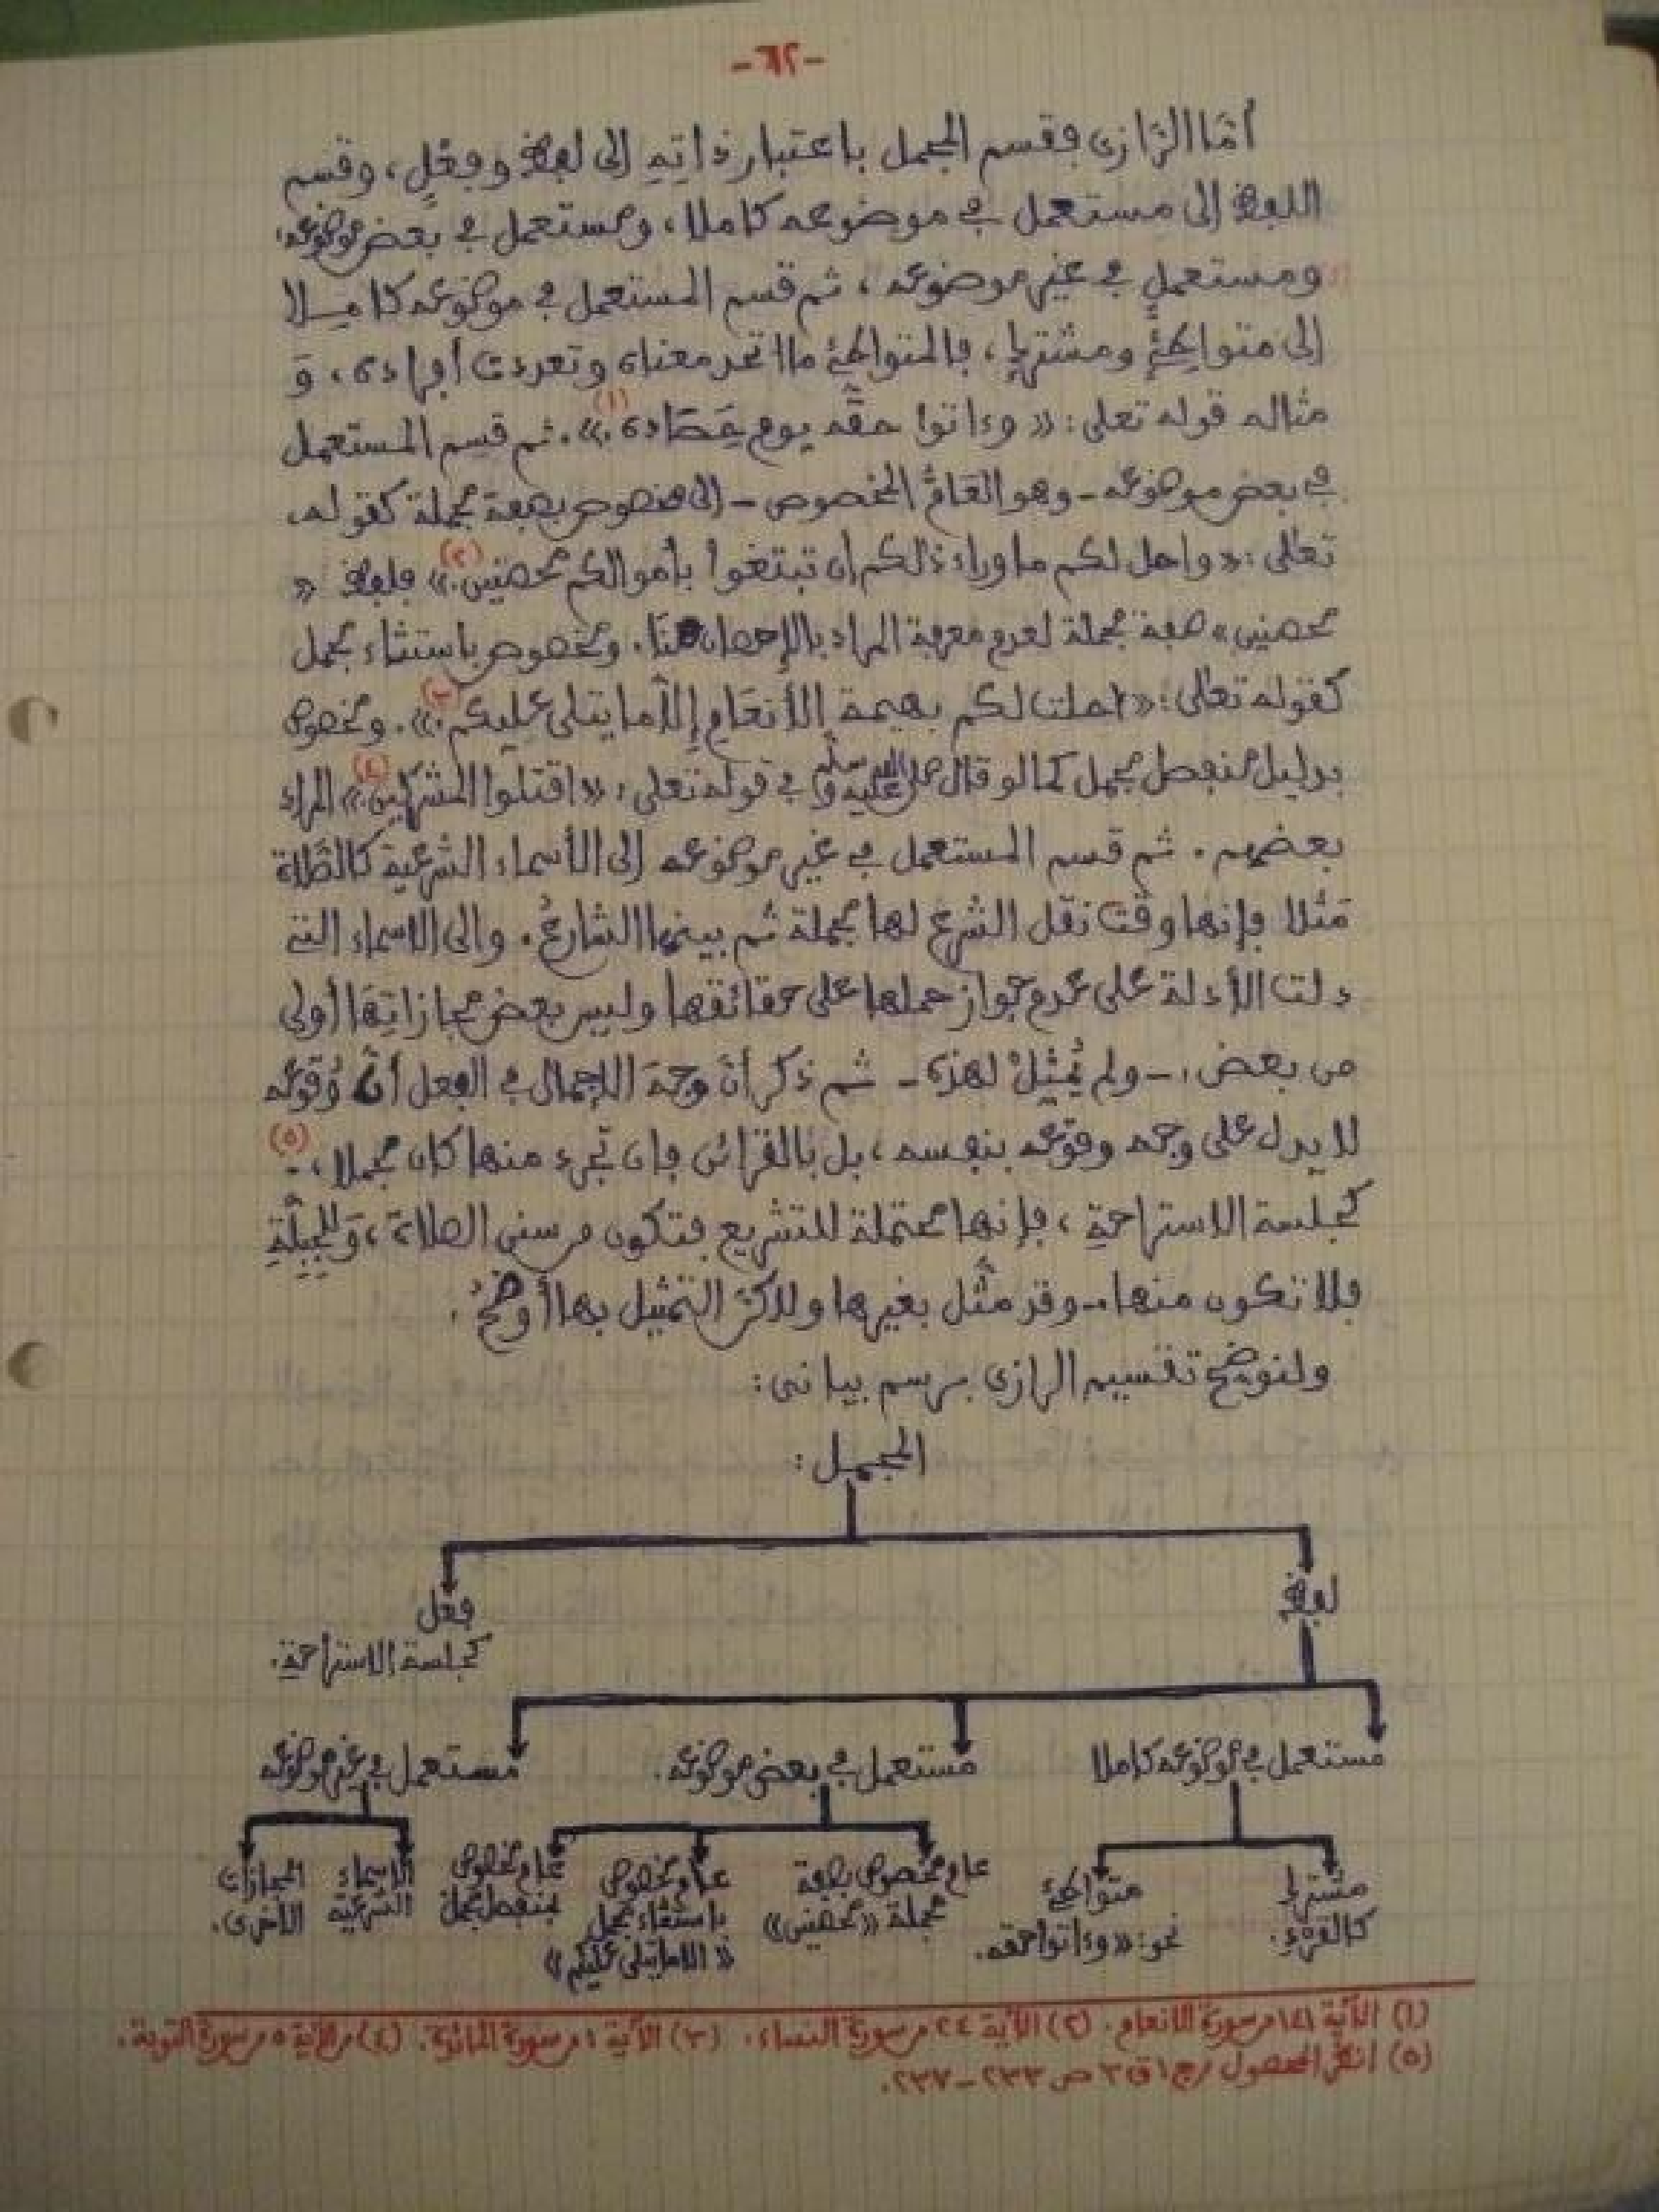 -٦٢-
أمّا الرّازي فقسم المجمل باعتبار ذاتِهِ إلى لفظٍ وفِعْلٍ، وقسم
اللفظ إلى مستعمل في موضوعه كاملا، ومستعمل في بعض موضوعه،
ومستعمل في غير موضوعه، ثم قسم المستعمل في موضوعه كاملا
إلى متواطِئٍ ومشتركٍ، فالمتواطئ ما اتحد معناه وتعددت أفراده، وَ
مثاله قوله تعلى: «وءاتوا حقَّه يوم حَصَاده.»(١). ثم قسم المستعمل
في بعض موضوعه - وهو العَامُّ المخصوص - إلى مخصوص بصفة مجملة كقوله،
تعالى: «واحل لكم ما وراء ذلكم أن تبتغوا بأموالكم محصنين.»(٢) فلفظ «
محصنين» صفة مجملة لعدم معرفة المراد بالإحصان هنَا. ومخصوص باستثناء مجمل
كقوله تعالى: «احلت لكم بهيمة الأنعَامِ إلاَّ ما يتلى عليكم.»(٣). ومخصوص
بدليل منفصل مجمل كما لو قال صلى الله عليه وسلم في قوله تعلى: «اقتلوا المشركين.»(٤) المراد
بعضهم. ثم قسم المستعمل في غير موضوعه إلى الأسماء الشرعية كالصَّلاة
مَثلا فإنها وقت نقل الشرع لها مجملة ثم بينها الشارعُ. وإلى الاسماء التي
دلت الأدلة على عدم جواز حملها على حقائقها وليس بعض مجازاتِهَا أولى
من بعض، - ولم يُمَثِّلْ لهذه - ثم ذكر أنّ وجهَ الإجمال في الفعل أنَّ وُقوعَه
لا يدل على وجه وقوعه بنفسه، بل بالقرائن فإن تجرد منها كان مجملا، -(٥)
كجلسة الاستراحةِ، فإنها محتملة للتشريع فتكون من سنن الصلاة، وَلِلْجِبِلَّةِ
فلا تكون منها. - وقد مثَّل بغيرها ولاكنَّ التمثيل بها أوضحُ.
ولنوضح تقسيم الرازي برسم بياني:
المجمل:
لفظ فعل
كجلسة الاستراحة.
مستعمل في موضوعه كاملا مستعمل في بعض موضوعه. مستعمل في غير موضوعه
مشترك متواطئ عام مخصوص بصفة عام مخصوص عام مخصوص الاسماء المجازات
كالقرء. نحو: «وءاتوا حقه. مجملة «محصنين» باستثناء مجمل بمنفصل مجمل الشرعية الأخرى.
«إلا ما يتلى عليكم»
(١) الآية ١٤١ من سورة الانعام. (٢) الآية ٢٤ من سورة النساء. (٣) الآية ١ من سورة المائدة. (٤) من الآية ٥ من سورة التوبة.
(٥) انظر المحصول / ج ١ ق ٣ ص ٢٣٣ - ٢٣٧.